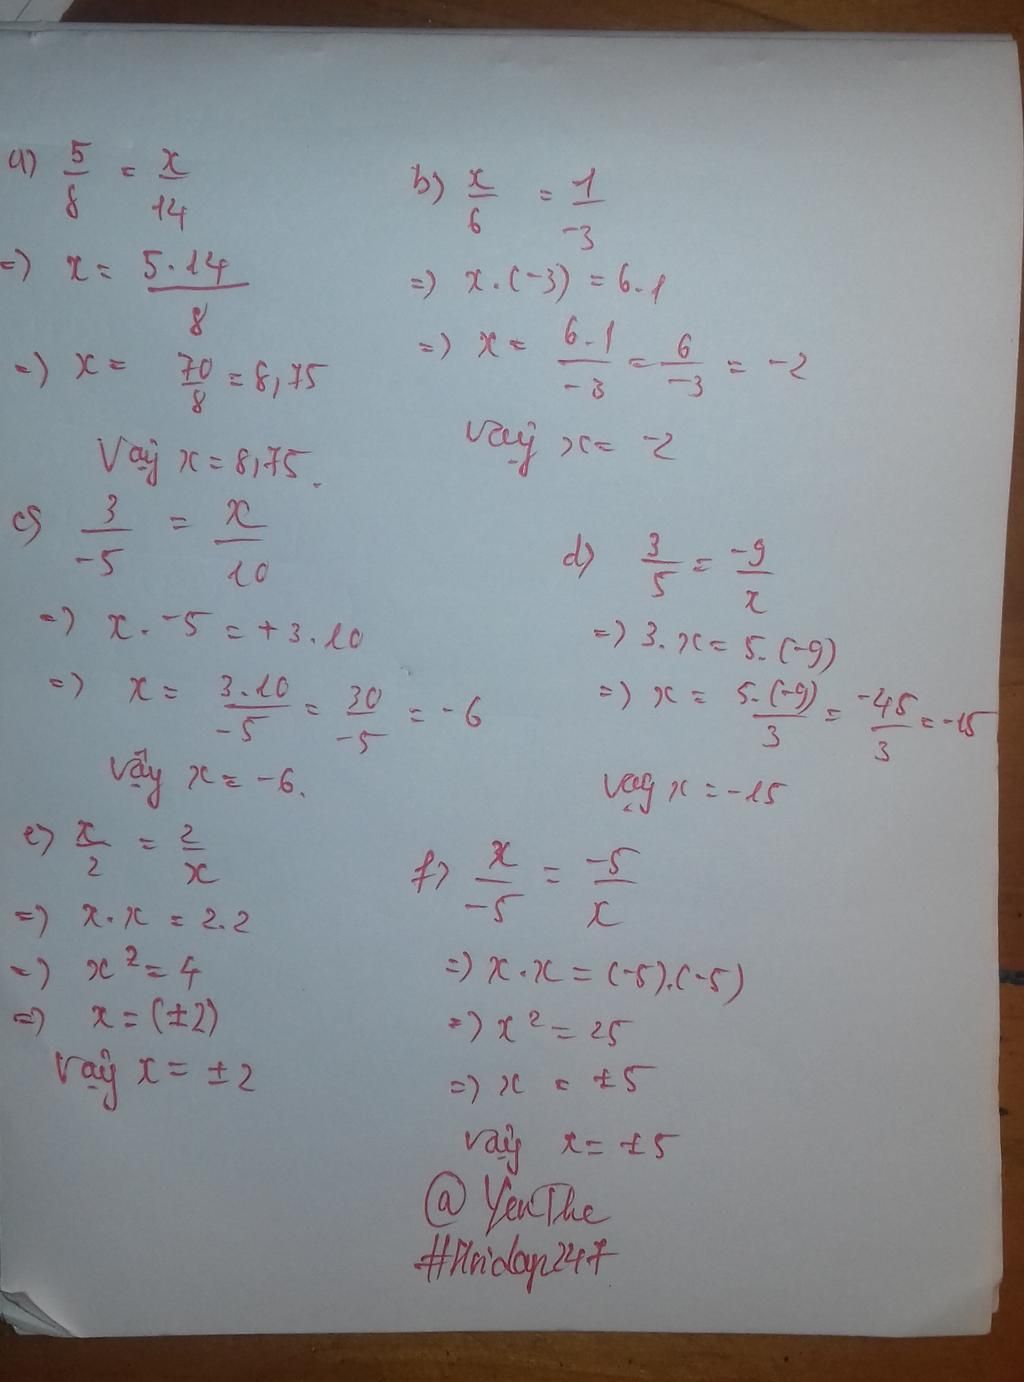 a) 5/8 = x/14
=) x = 5.14/8
=) x = 70/8 = 8,75
Vậy x = 8,75.
b) x/6 = 1/-3
=) x.(-3) = 6.1
=) x = 6.1/-3 = 6/-3 = -2
Vậy x = -2
c) 3/-5 = x/10
=) x. -5 = +3.10
=) x = 3.10/-5 = 30/-5 = -6
Vậy x = -6.
d) 3/5 = -9/x
=) 3.x = 5.(-9)
=) x = 5.(-9)/3 = -45/3 = -15
Vậy x = -15
e) x/2 = 2/x
=) x.x = 2.2
=) x² = 4
=) x = (±2)
Vậy x = ±2
f) x/-5 = -5/x
=) x.x = (-5).(-5)
=) x² = 25
=) x = ±5
Vậy x = ±5
@ YenThe